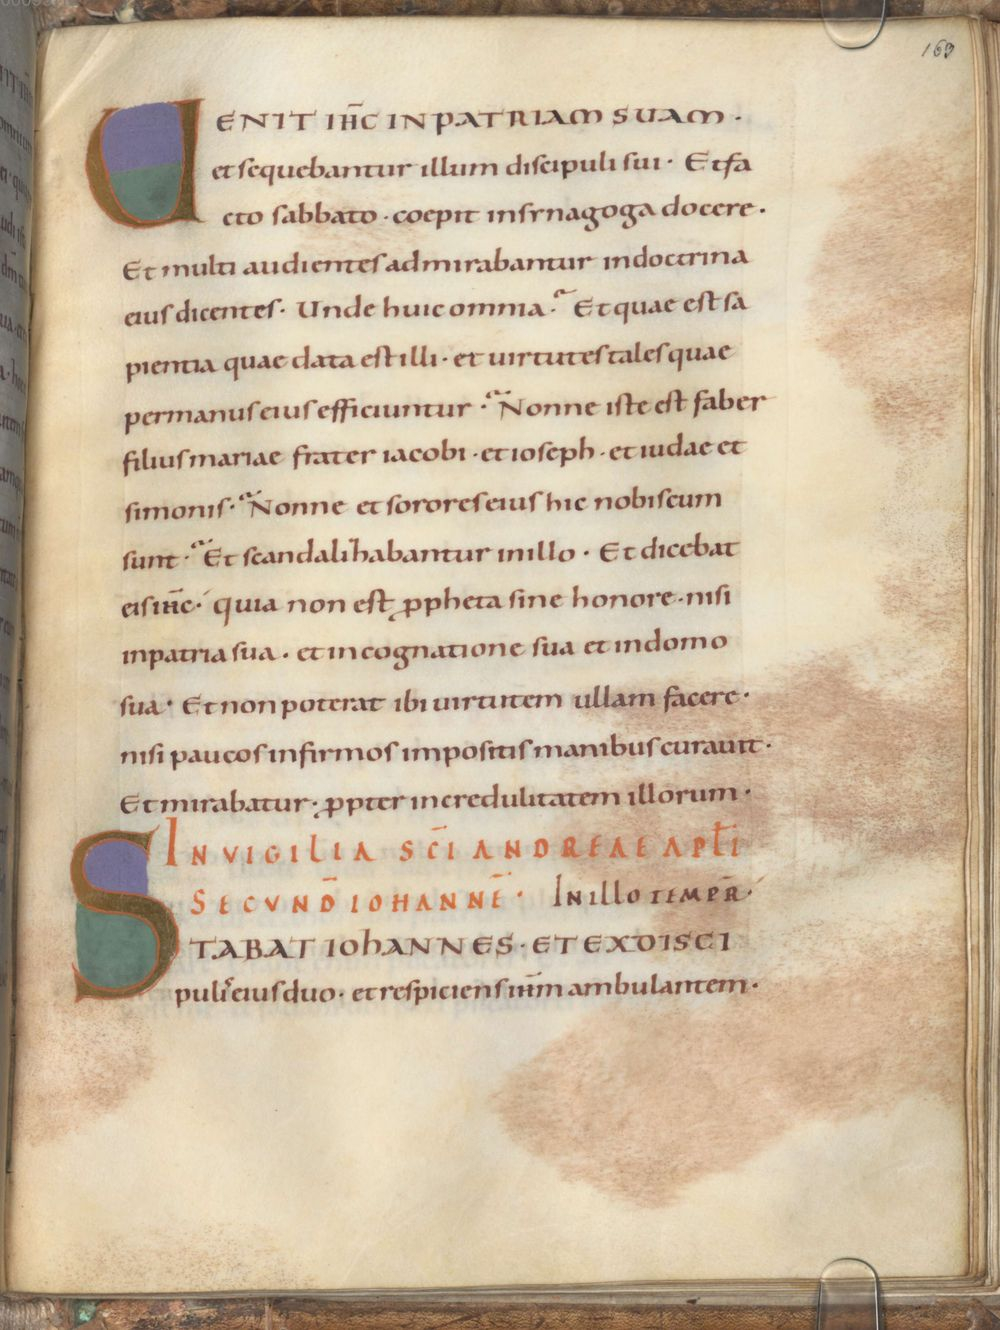 169
UENIT IHC̅ IN PATRIAM SUAM ·
et sequebantur illum discipuli sui · Et fa
cto sabbato · coepit in synagoga docere ·
Et multi audientes admirabantur in doctrina
eius dicentes · Unde huic omnia · Et quae est sa
pientia quae data est illi · et uirtutes tales quae
per manus eius efficiuntur · Nonne iste est faber
filius mariae frater iacobi · et ioseph · et iudae et
simonis · Nonne et sorores eius hic nobiscum
sunt · Et scandalihabantur in illo · Et dicebat
eis ihc̅ · quia non est ꝓpheta sine honore · nisi
in patria sua · et in cognatione sua et in domo
sua · Et non poterat ibi uirtutem ullam facere ·
nisi paucos infirmos impositis manibus curauit ·
Et mirabatur · ꝓpter incredulitatem illorum ·
IN VIGILIA SC̅I ANDREAE APL̅I
SECVND̅ IOHANNE̅ · IN ILLO TEMPR̅ ·
STABAT IOHANNES · ET EX DISCI
pulis eius duo · et respiciens ihm̅ ambulantem ·